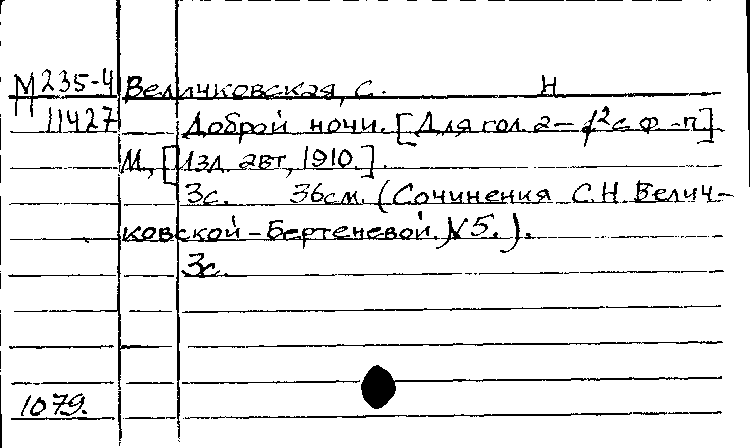 М 235-4 Величковская, С. Н
11427 Доброй ночи. [Для гол. a – f² с ф-п].
М., [Изд. авт., 1910.].
3с. 36см. (Сочинения С.Н. Велич-
ковской-Бертеневой. №5.).
3с.
1079.